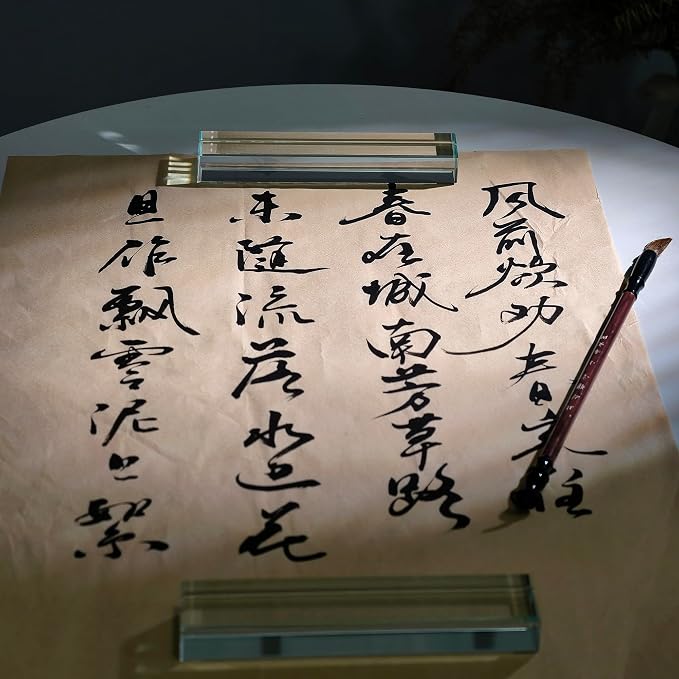 风前欲劝春光住
春在城南芳草路
未随流落水边花
且作飘零泥上絮